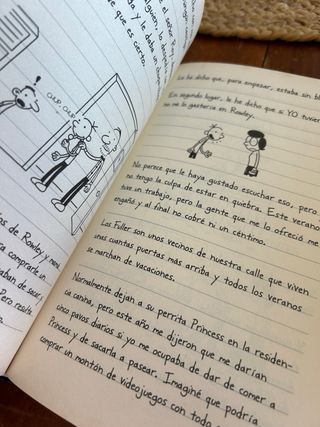 el señor Ro
alguien, lo despe
ya y le daba un choque
que es cierto.
CLIC, CLIC
de Rowley y
comprarte un
de sacar,
Pero resulta
Le he dicho que, para empezar, estaba sin bl
En segundo lugar, le he dicho que si YO tuvier
no me lo gastaría en Rowley.
No parece que le haya gustado escuchar eso, pero
no tengo la culpa de estar en quiebra. Este verano
tuve un trabajo, pero la gente que me lo ofreció me
engañó y al final no cobré ni un céntimo.
Los Fuller son unos vecinos de nuestra calle que viven
unas cuantas puertas más arriba y todos los veranos
se marchan de vacaciones.
Normalmente dejan a su perrita Princess en la residen-
cia canina, pero este año me dijeron que me darían
cinco pavos diarios si yo me ocupaba de dar de comer a
Princess y de sacarla a pasear. Imaginé que podría
comprar un montón de videojuegos con todo